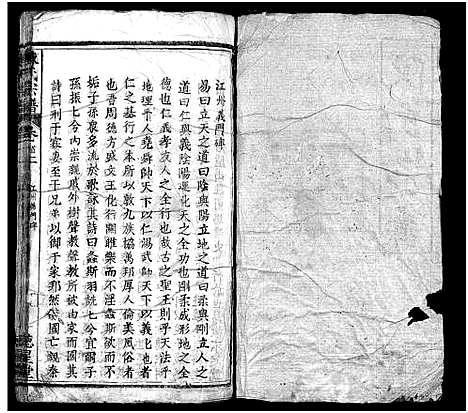 江州義門碑
易曰立天之道曰陰與陽立地之道曰柔與剛立人之
道曰仁與義陰陽運化天之全功也剛柔成形地之全
德也仁義孝友人之全行也故古之聖王則乎天法乎
地理乎人堯舜帥天下以仁湯武帥天下以義化也者
仁之基行之本所以敦九族協萬邦厚人倫美風俗者
也昔周德方盛文王化行關雎樂而不淫螽斯
振子孫衆多流於歌詠其詩曰螽斯羽詵詵兮宜爾子
孫振振兮內崇親戚外樹聲教聲教所被由家而國其
詩曰刑于寡妻至于兄弟以御于家邦
卷之二
江州義門碑
德星堂